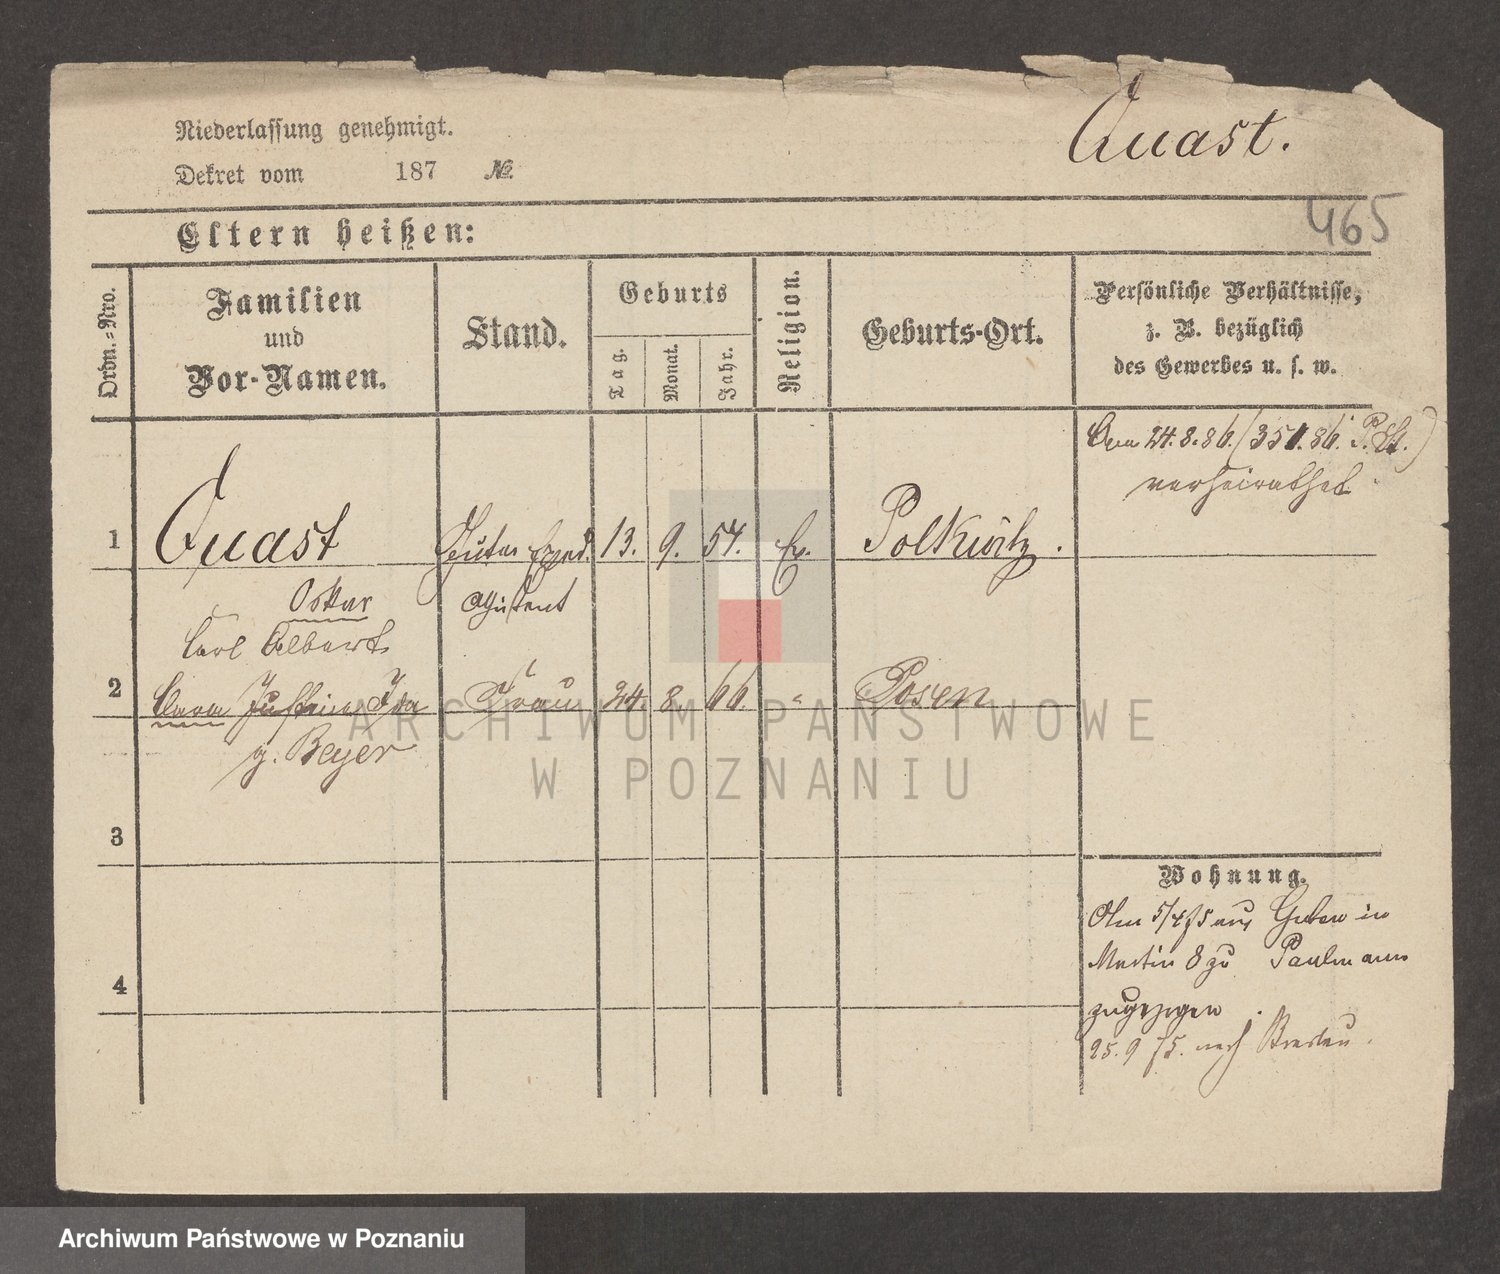 Quast.
Niederlassung genehmigt.
Dekret vom 187 №
465
Eltern heißen:
Ordn.=Nro.
Familien
und
Vor-Namen.
Stand.
Geburts
Tag.
Monat.
Jahr.
Religion.
Geburts-Ort.
Persönliche Verhältnisse,
z. B. bezüglich
des Gewerbes u. s. w.
Am 24.8.86. (351.86. P. St.)
verheirathet
1 Quast Exped. 13. 9. 57. Ev. Polkwitz.
Oskar Assistent
Carl Albert
2 Clara Ida Frau 24. 8. 66. " Posen
g. Beyer
3
4
Wohnung.
Am 5/4 75 aus Guben in
Martin 8 zu Paulmann
zugezogen.
25. 9 75. nach Breslau.
ARCHIWUM PAŃSTWOWE
W POZNANIU
Archiwum Państwowe w Poznaniu